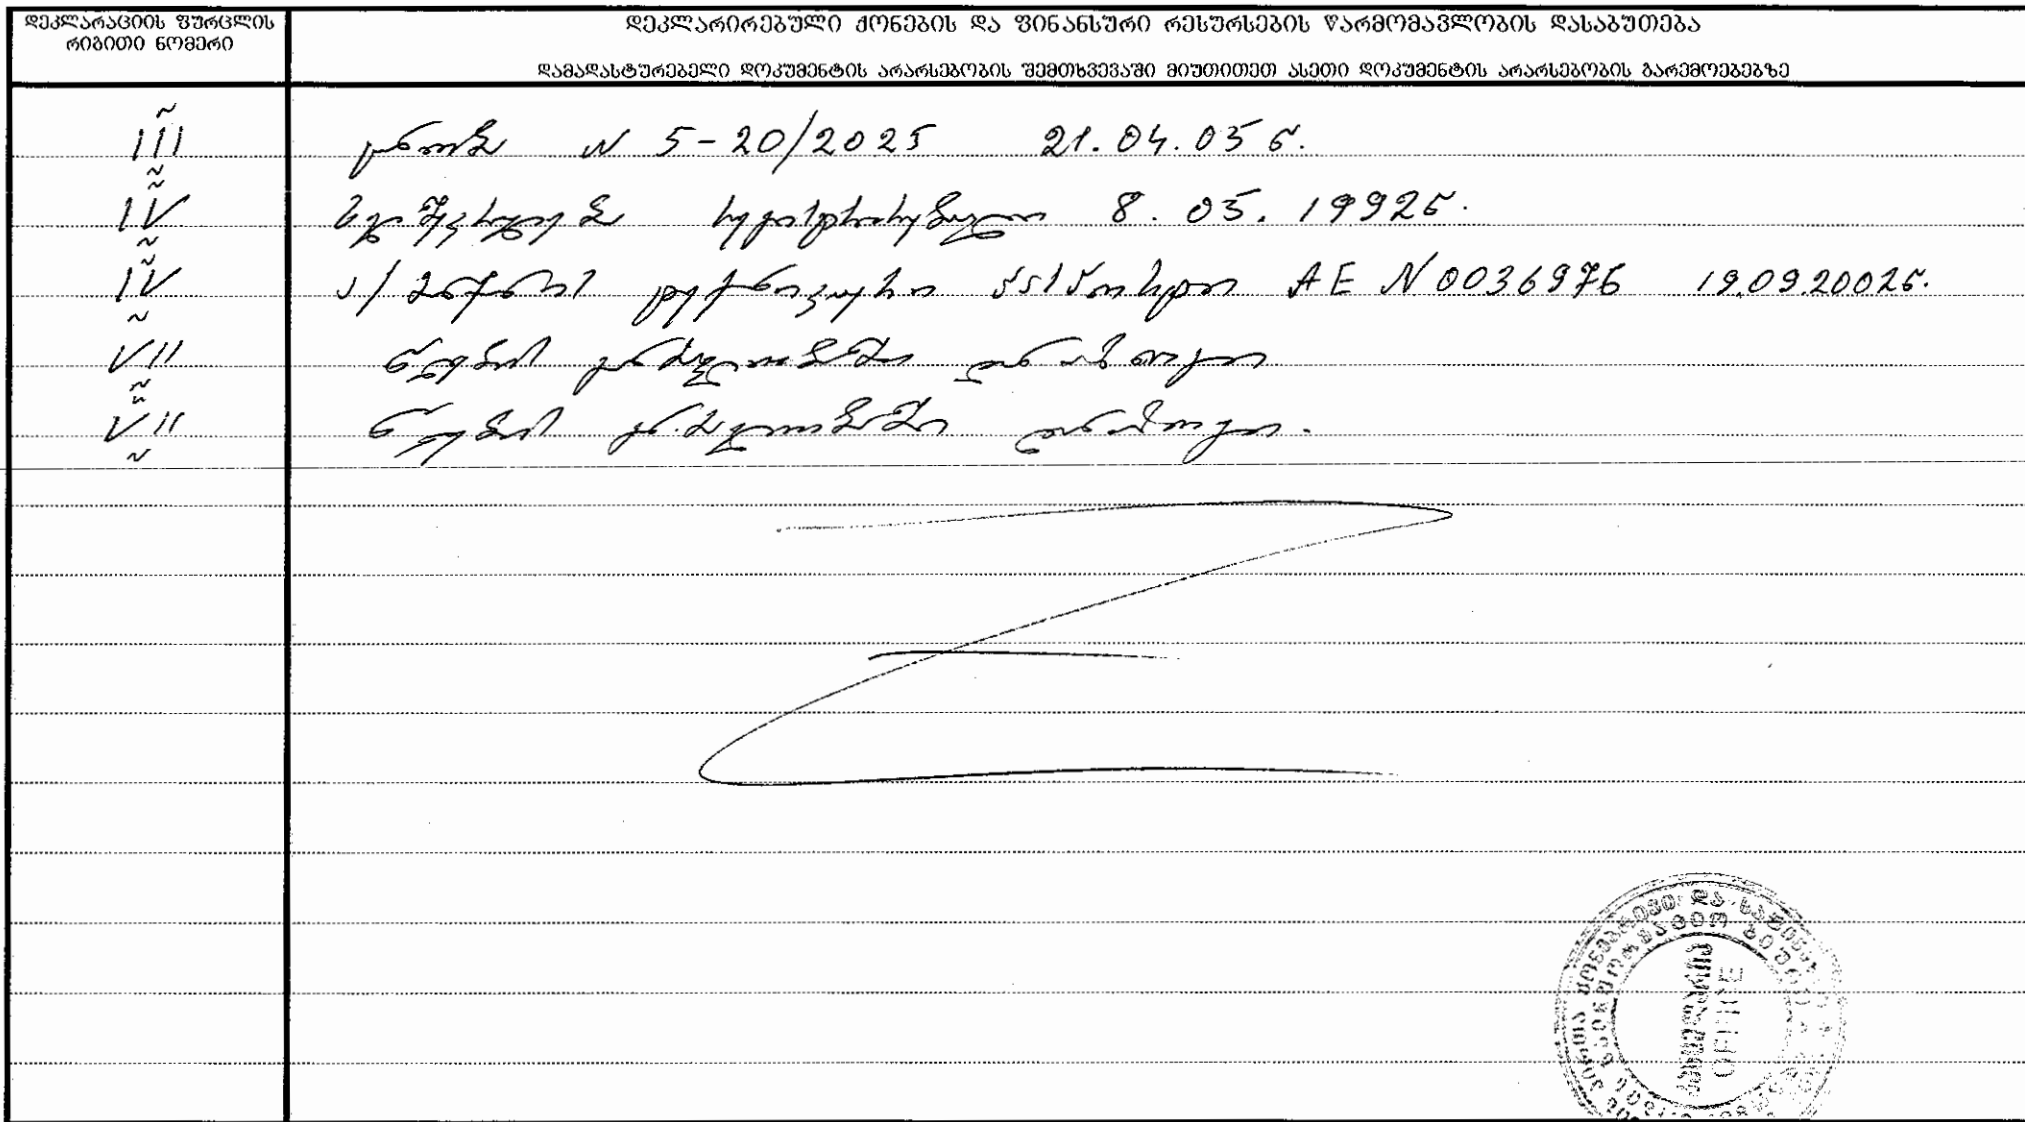 დეკლარაციის ფურცლის
რიგითი ნომერი
დეკლარირებული ქონების და ფინანსური რესურსების წარმომავლობის დასაბუთება
დამადასტურებელი დოკუმენტის არარსებობის შემთხვევაში მიუთითეთ ასეთი დოკუმენტის არარსებობის გარემოებებზე
III ცნობა N 5-20/2025 21.04.05 წ.
IV ხელშეკრულება რეგისტრირებული 8.05.1992წ.
IV ა/მანქანის ტექნიკური პასპორტი AE N 0036976 19.09.2002წ.
VII წლების განმავლობაში დანაზოგი
VII წლების განმავლობაში დანაზოგი.
OFFICE